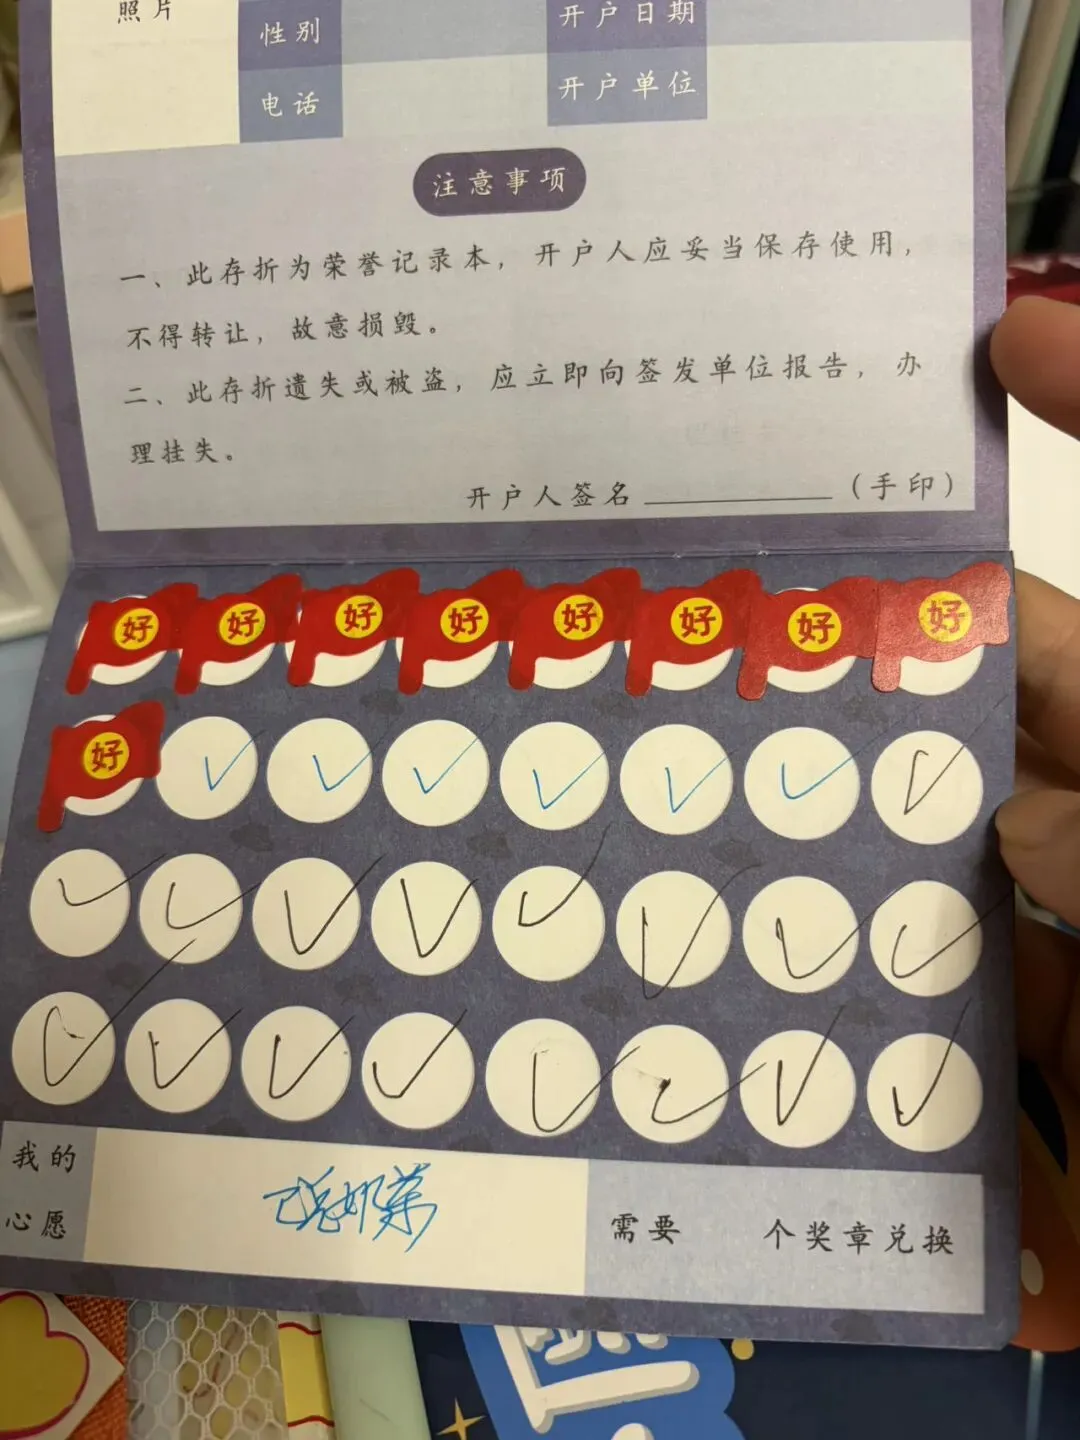 照片
性别
开户日期
电话
开户单位
注意事项
一、此存折为荣誉记录本，开户人应妥当保存使用，
不得转让，故意损毁。
二、此存折遗失或被盗，应立即向签发单位报告，办
理挂失。
开户人签名（手印）
好 好 好 好 好 好 好 好
好
我的
心愿
奶茶
需要 个奖章兑换